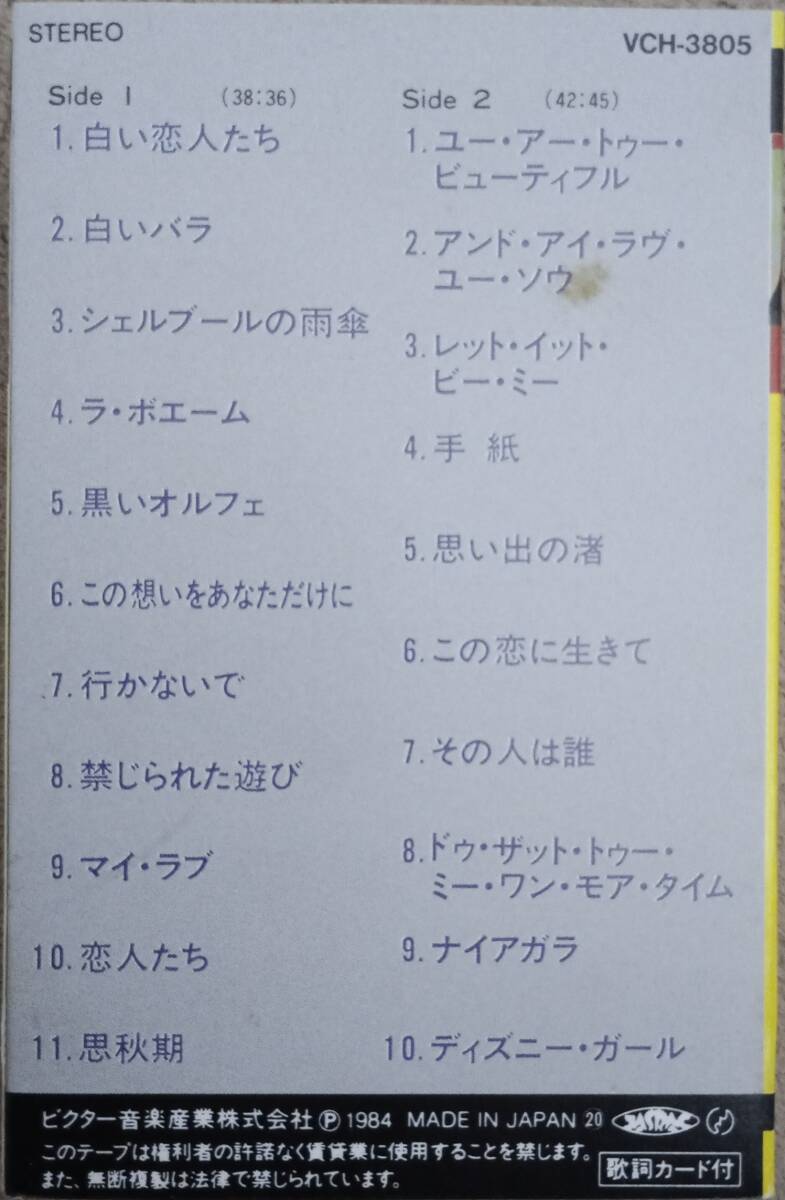 STEREO
VCH-3805
Side 1 (38:36)
1. 白い恋人たち
2. 白いバラ
3. シェルブールの雨傘
4. ラ・ボエーム
5. 黒いオルフェ
6. この想いをあなただけに
7. 行かないで
8. 禁じられた遊び
9. マイ・ラブ
10. 恋人たち
11. 思秋期
Side 2 (42:45)
1. ユー・アー・トゥー・
ビューティフル
2. アンド・アイ・ラヴ・
ユー・ソウ
3. レット・イット・
ビー・ミー
4. 手 紙
5. 思い出の渚
6. この恋に生きて
7. その人は誰
8. ドゥ・ザット・トゥー・
ミー・ワン・モア・タイム
9. ナイアガラ
10. ディズニー・ガール
ビクター音楽産業株式会社 Ⓟ 1984 MADE IN JAPAN ⑳
このテープは権利者の許諾なく賃貸業に使用することを禁じます。
また、無断複製は法律で禁じられています。
歌詞カード付